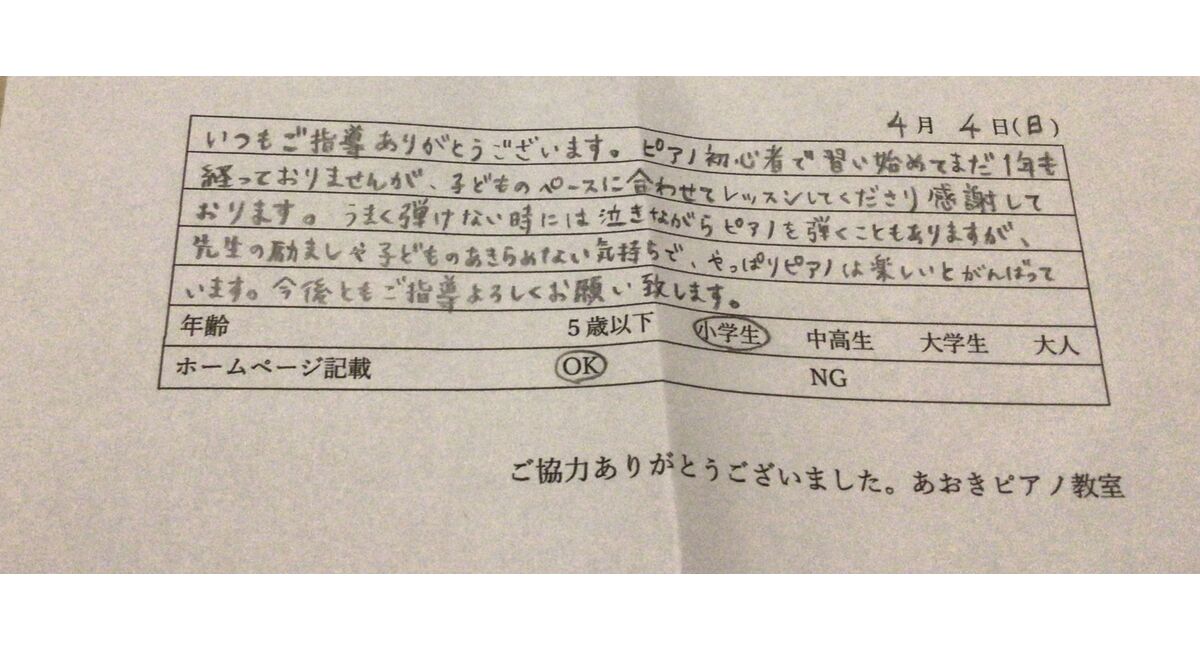 4月 4日(日)
いつもご指導ありがとうございます。ピアノ初心者で習い始めてまだ1年も
経っておりませんが、子どものペースに合わせてレッスンしてくださり感謝して
おります。うまく弾けない時には泣きながらピアノを弾くこともありますが、
先生の励ましや子どものあきらめない気持ちで、やっぱりピアノは楽しいとがんばって
います。今後ともご指導よろしくお願い致します。
年齢 5歳以下 小学生 中高生 大学生 大人
ホームページ記載 OK NG
ご協力ありがとうございました。あおきピアノ教室